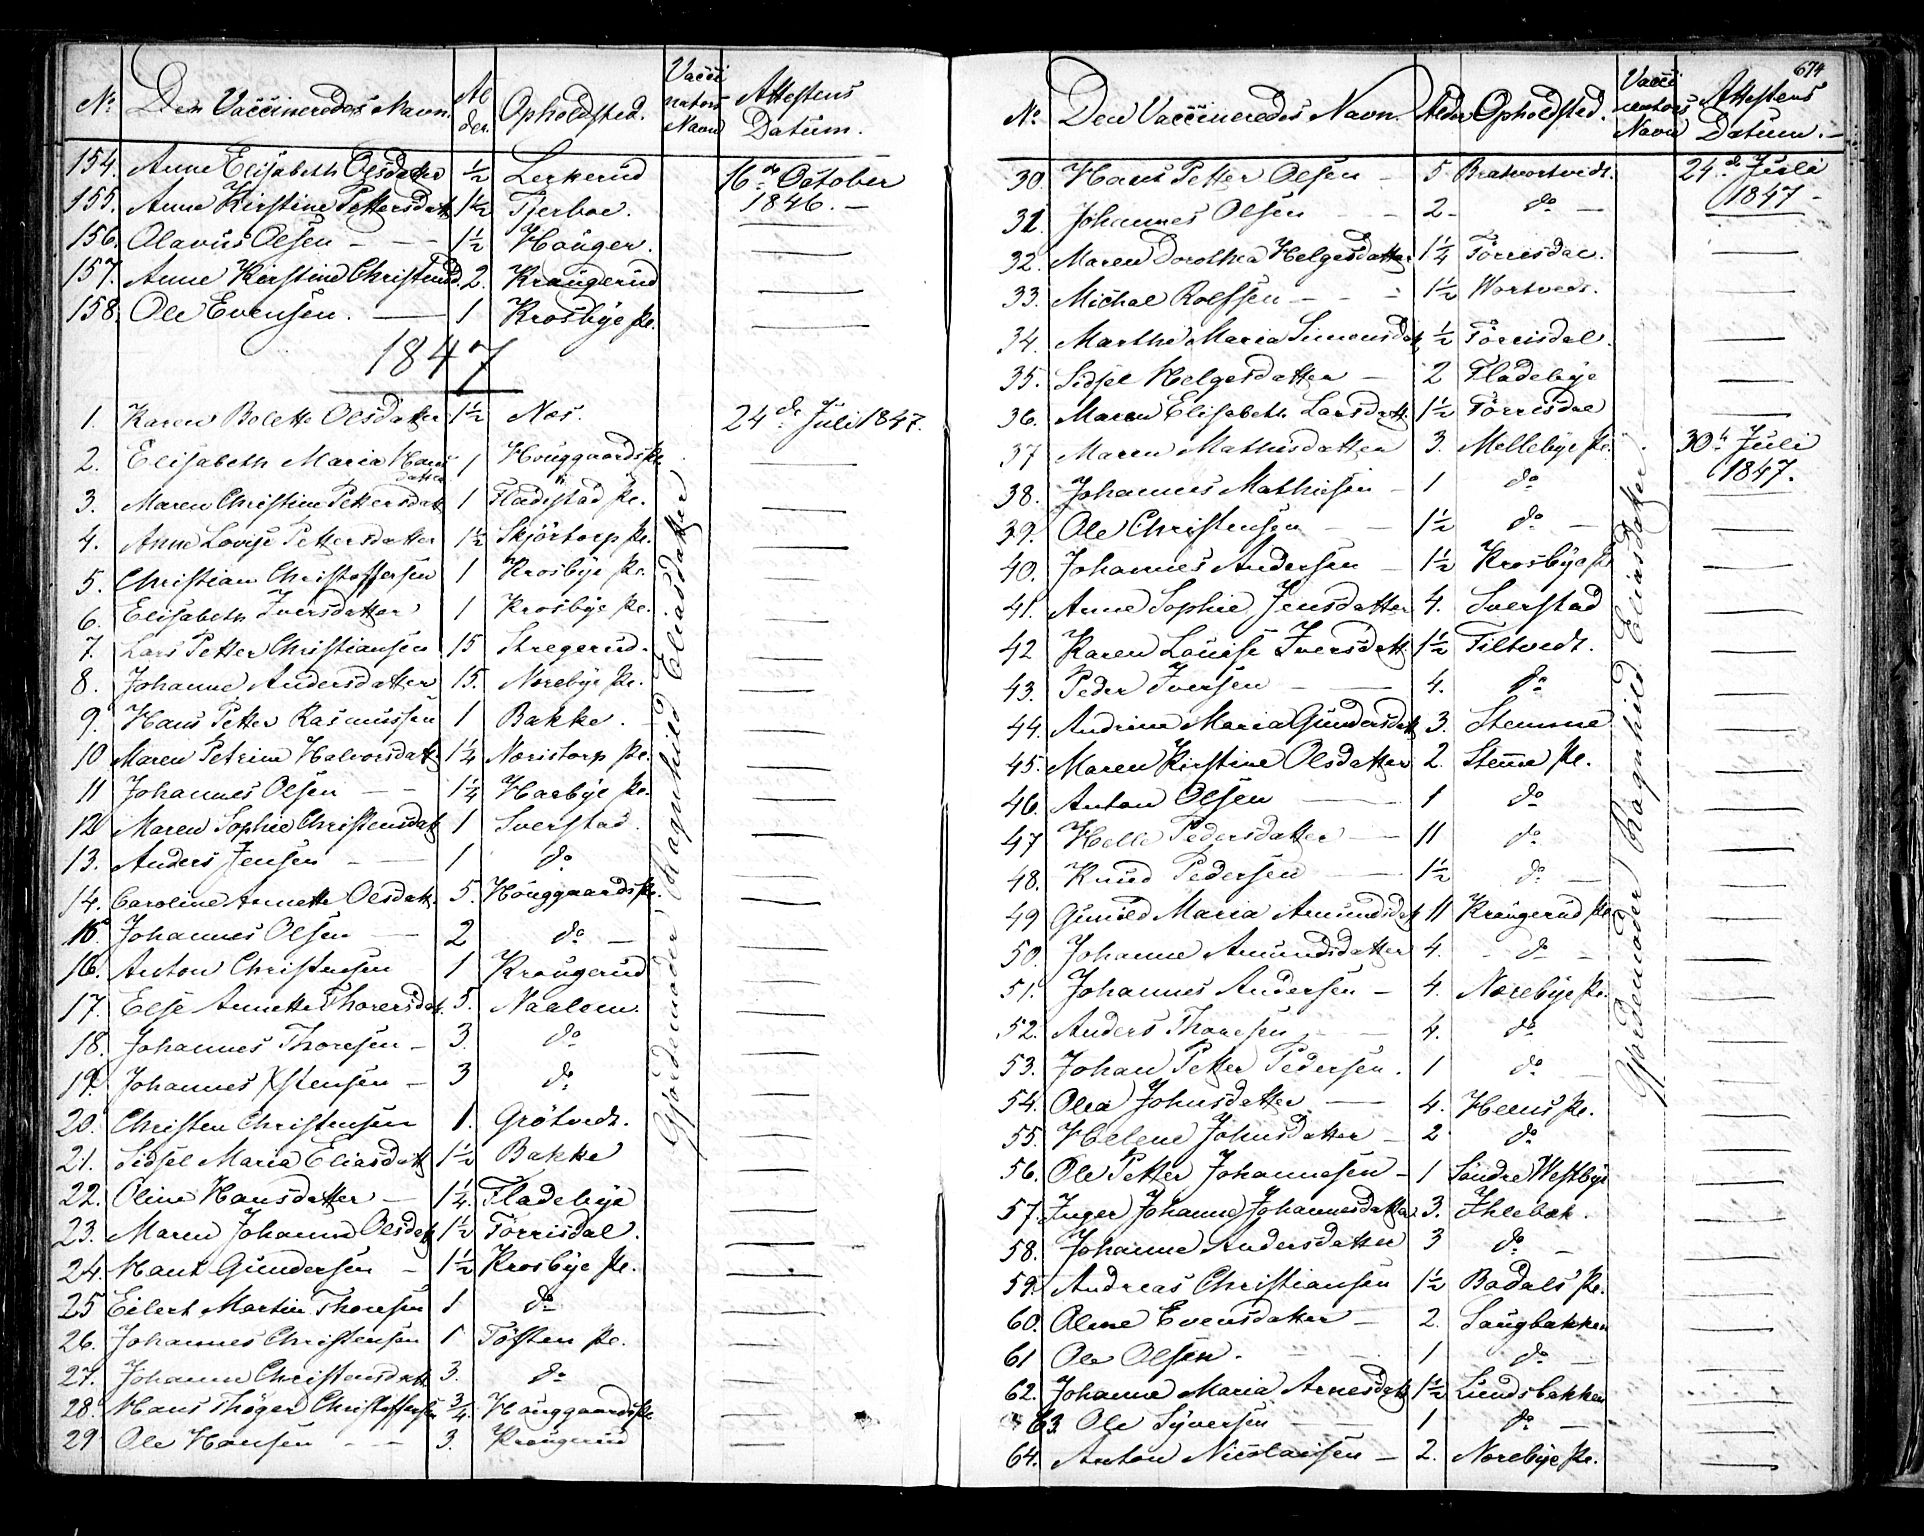 No. Den Vaccineredes Navn. Alder. Opholdsted. Vaccinators Navn Attestens Datum.
154. Anne Elisabeth Olsdatter ½ Lerkerud 16de October
155. Anne Kirstine Pettersdatt 1½ Tjerboe. 1846. —
156. Olavus Olsen — — 1½ Houger. —
157. Anne Kirstine Christensd. 2. Kraugerud —
158. Ole Evensen. — 1 Krosbÿe Pe. —
1847
1. Karen Bolette Olsdatter 1½ Næs. 24de Juli 1847.
2. Elisabeth Maria Hansdatter 1 Houggaards Pe. —
3. Maren Christine Pettersdatt 1 Fladestad Pe. —
4. Anne Lovise Pettersdatter 1½ Skjörtorp Pe. —
5. Christian Christoffersen 1 Krosbÿe Pe. —
6. Elisabeth Iversdatter 1 Krosbÿe Pe. —
7. Lars Petter Christiansen 15 Stregerud. —
8. Johanne Andersdatter 15. Norebÿe Pe. —
9. Hans Petter Rasmussen 1 Bakke. —
10 Maren Petrine Halvorsdatt 1¼ Neristorp Pe. —
11 Johannes Olsen — — 1¼ Haabÿe Pe. —
12 Maren Sophie Christensdatt 1 Sverstad. —
13. Anders Jensen — — 1 do —
14. Caroline Annette Olsdatt. 5. Houggaards Pe. —
15. Johannes Olsen — 2 do — —
16. Anton Christensen 1 Kraugerud —
17. Else Annette Thoresdat. 5. Naalom. —
18. Johannes Thoresen — 3. do —
19. Johannes Xstensen — 3 do —
20. Christen Christensen 1. Grötvedt. —
21. Sidsel Maria Eliasdatt 1½ Bakke —
22. Oline Hansdatter — 1¼. Fladebÿe —
23. Maren Johanne Olsdatt 1½ Torrisdal. —
24. Hans Gundersen — 1½ Krosbÿe Pe. —
25 Eilert Martin Thoresen 1 do —
26. Johannes Christensen 1 Töften Pe. —
27. Johanne Christensdatt 3. do —
28. Hans Thöger Christoffersen ¾ Houggaards Pe —
29 Ole Hansen — — 3. Kraugerud —
Gjordemoder Ragnhild Eliasdatter
674
No. Den Vaccineredes Navn. Alder Opholdsted. Vaccinators Navn Attestens Datum. —
30. Hans Petter Olsen — 5 Bratvortvedt. 24de Juli
31. Johannes Olsen — — 2 — do — 1847 —
32. Maren Dorothea Helgesdatter 1¼ Torrisdal. —
33. Michal Rolfsen — — — 1½ Wortvedt. —
34. Marthe Maria Simensdat ½ Törrisdal. —
35. Sidsel Helgesdatter — 2 Fladebÿe —
36. Maren Elisabeth Larsdatt. 1½ Torrisdal —
37 Maren Mathisdatter 3. Mellebÿe Pe. 30te Juli
38. Johannes Mathisen — 1 do 1847.
39. Ole Christensen — — 1½ do — —
40. Johannes Andersen — 1½ Krosbÿe Pe —
41. Anne Sophie Jensdatter 4. Sverstad —
42 Karen Louise Iversdatt 1½ Tiltvedt. —
43. Peder Iversen — — 4. do —
44. Andrine Maria Gundersdatt 3. Stemme —
45. Maren Kirstine Olsdatter 2. Stemme Pe. —
46. Anton Olsen — 1 do —
47 Helle Pedersdatter — 11 do —
48. Knud Pedersen — 1½ do — —
49 Gunild Maria Amundsdat 11 Kraugerud Pe —
50. Johanne Amundsdatter 4. — do — —
51. Johannes Andersen — 4. Norebÿe Pe. —
52. Anders Thoresen — — 4. do —
53. Johan Petter Pedersen. 1 do — —
54. Olea Johnsdatter — 4. Heens Pe. —
55. Helene Johnsdatter — 2 do —
56. Ole Petter Johannesen — 1 Söndre Westbÿe —
57. Inger Johanne Johannesdatter 3. Ihlebæk. —
58. Johanne Andersdatter 3 do — —
59. Andreas Christiansen 1½ Bodals Pe. —
60. Oline Evensdatter — 2. Saugbakken —
61 Ole Olsen. — — 1 do — —
62. Johanne Maria Arnesdatt 1½ Lundsbakken —
63. Ole Syversen — — 1 do — —
64. Anton Nicolaisen — 2. Norebÿe Pe. —
Gjordemoder Ragnhild Eliasdatter